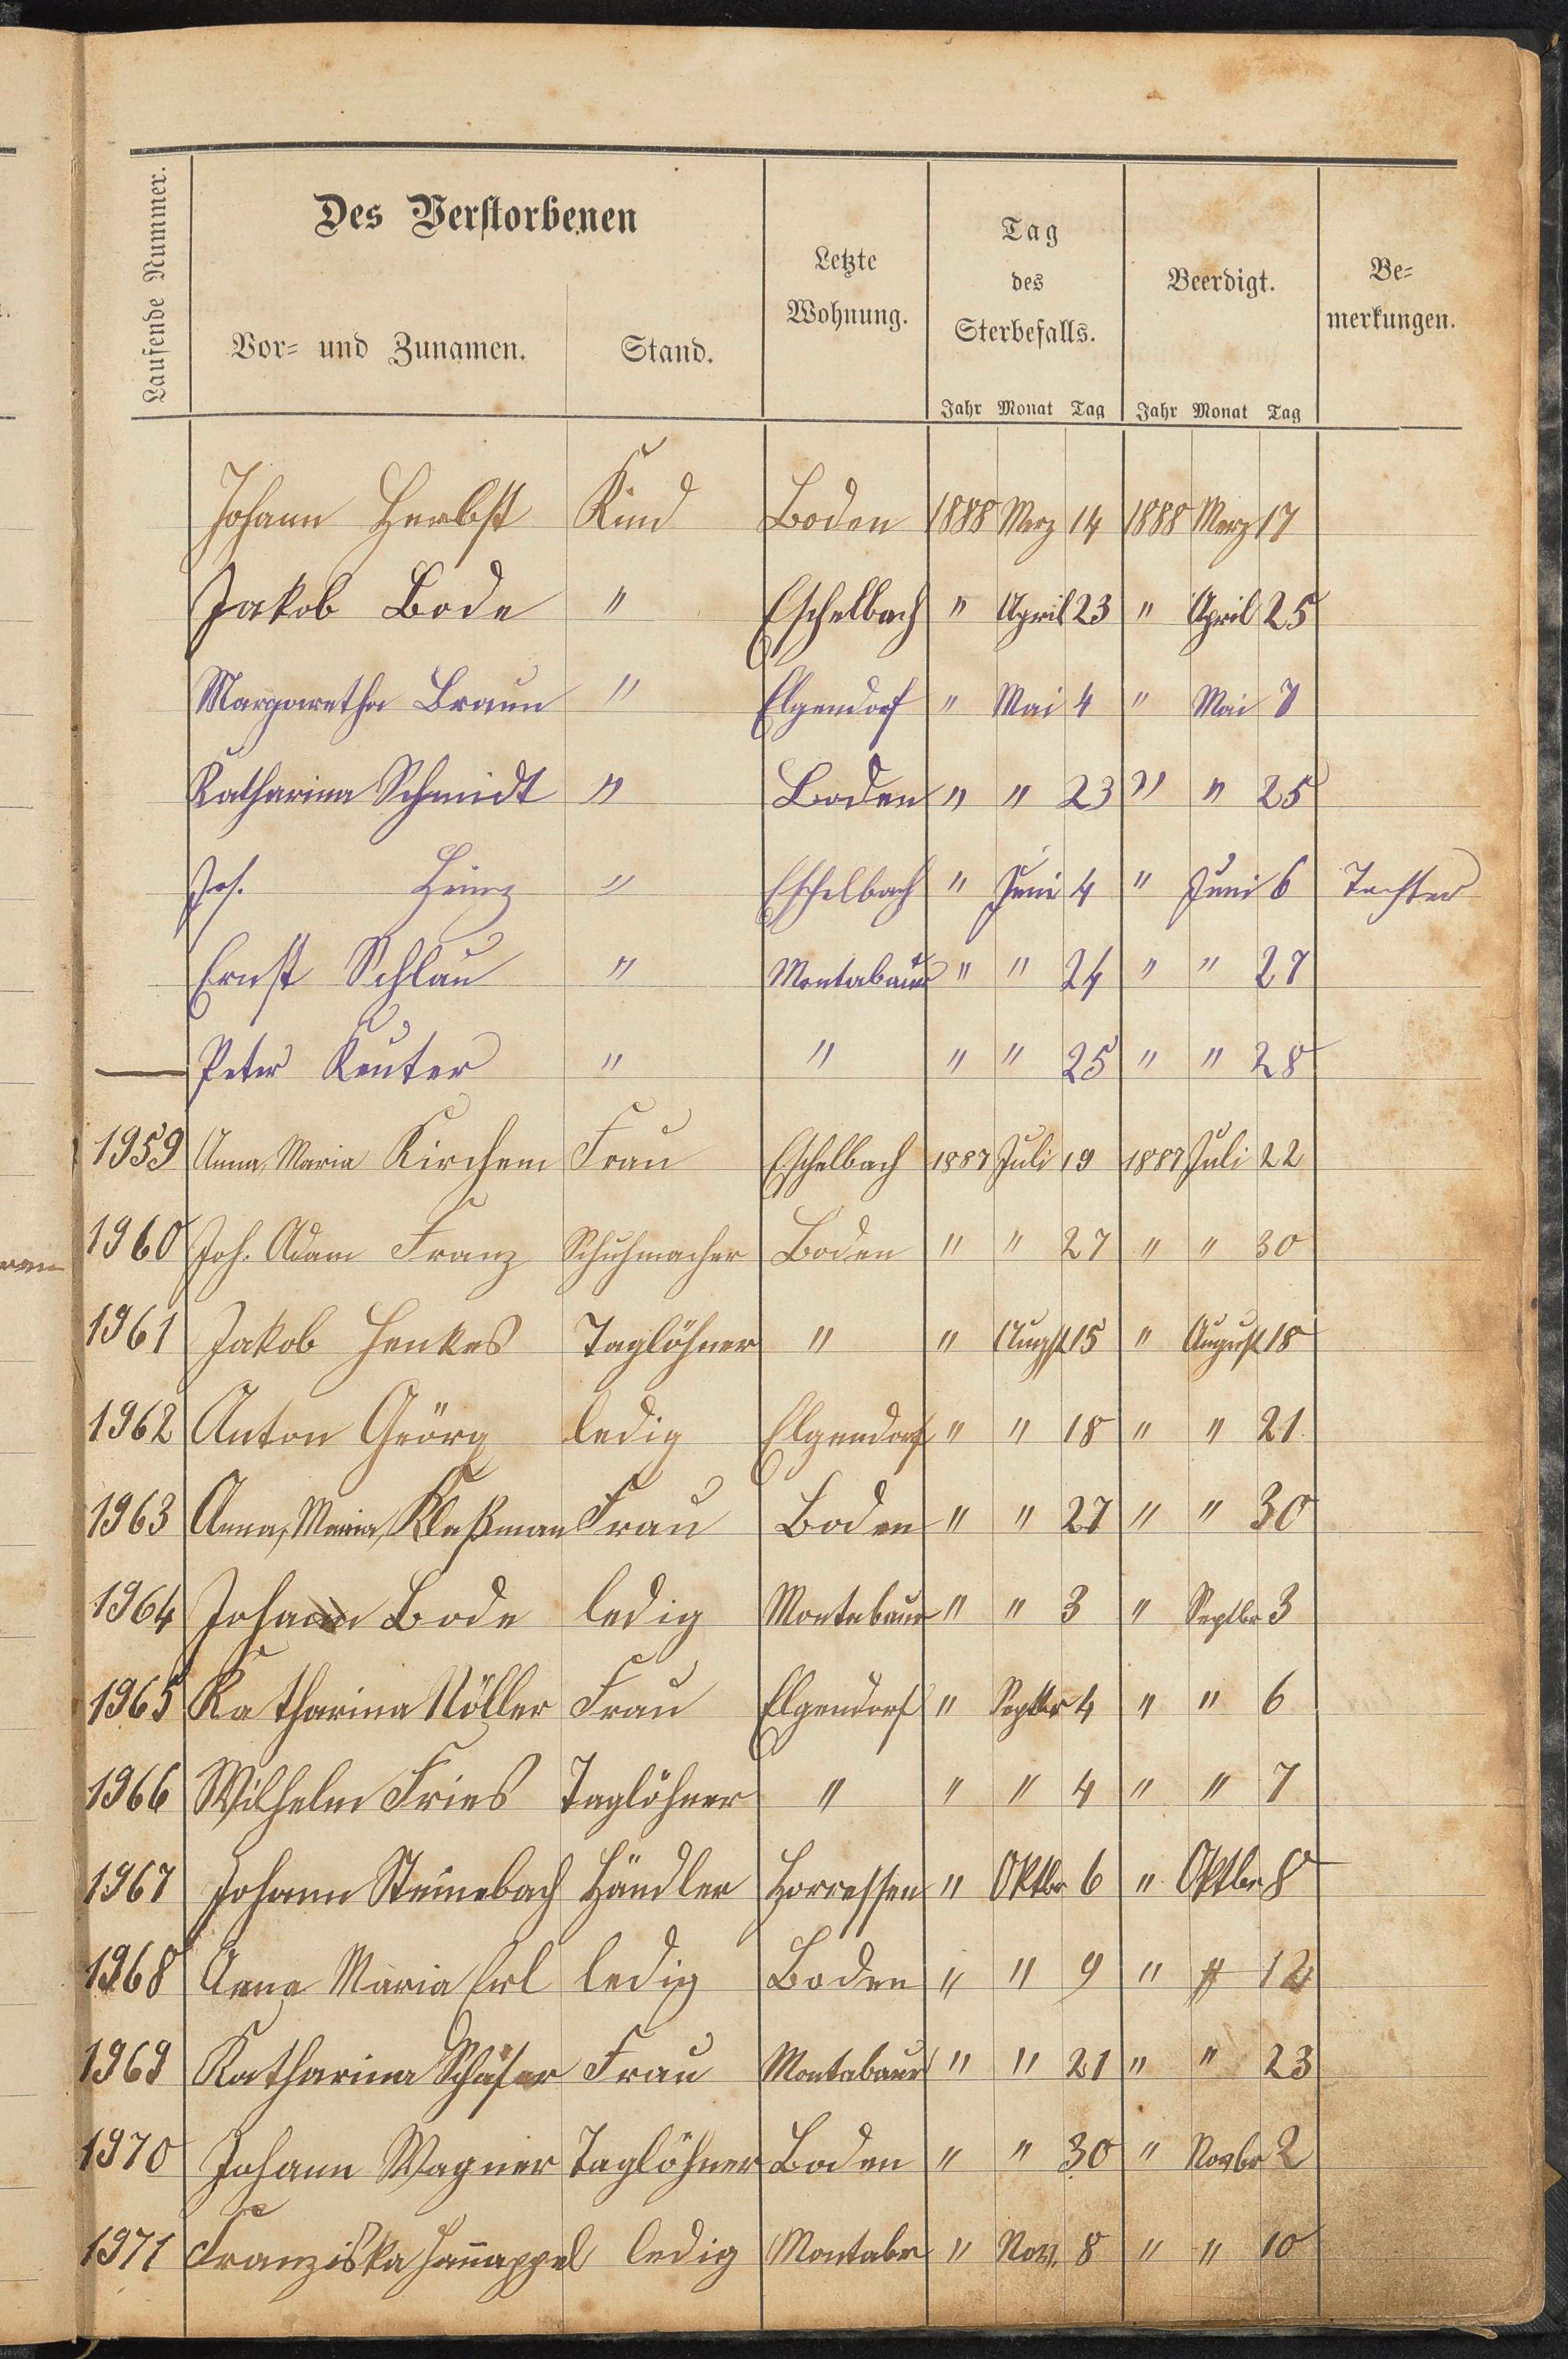 Laufende Nummer.
Des Verstorbenen
Vor- und Zunamen.
Stand.
Letzte
Wohnung.
Tag
des
Sterbefalls.
Beerdigt.
Be-
merkungen.
Jahr Monat Tag Jahr Monat Tag
Johann Herbst Kind Boden 1888 Merz 14 1888 Merz 17
Jakob Bode " Eschelbach " April 23 " April 25
Margaretha Braun " Elgendorf " Mai 4 " Mai 7
Katharina Schmidt " Boden " " 23 " " 25
Jos. Heinz " Eschelbach " Juni 4 " Juni 6 Tochter
Ernst Schlau " Montabaur " " 24 " " 27
Peter Reuter " " " " 25 " " 28
1959 Anna Maria Kirchem Frau Eschelbach 1887 Juli 19 1887 Juli 22
1960 Joh. Adam Franz Schuhmacher Boden " " 27 " " 30
1961 Jakob Henkes Taglöhner " " Augst 15 " August 18
1962 Anton Görg ledig Elgendorf " " 18 " " 21
1963 Anna, Maria, Kleßman Frau Boden " " 27 " " 30
1964 Johann Bode ledig Montabaur " " 3 " Septbr 3
1965 Katharina Nöller Frau Elgendorf " Septbr 4 " " 6
1966 Wilhelm Fries Taglöhner " " " 4 " " 7
1967 Johann Steinebach Händler Horressen " Oktbr 6 " Oktbr 8
1968 Anna Maria Erl ledig Boden " " 9 " " 12
1969 Katharina Schäfer Frau Montabaur " " 21 " " 23
1970 Johann Wagner Taglöhner Boden " " 30 " Novbr 2
1971 Franziska Hannappel ledig Montabr " Nov. 8 " " 10